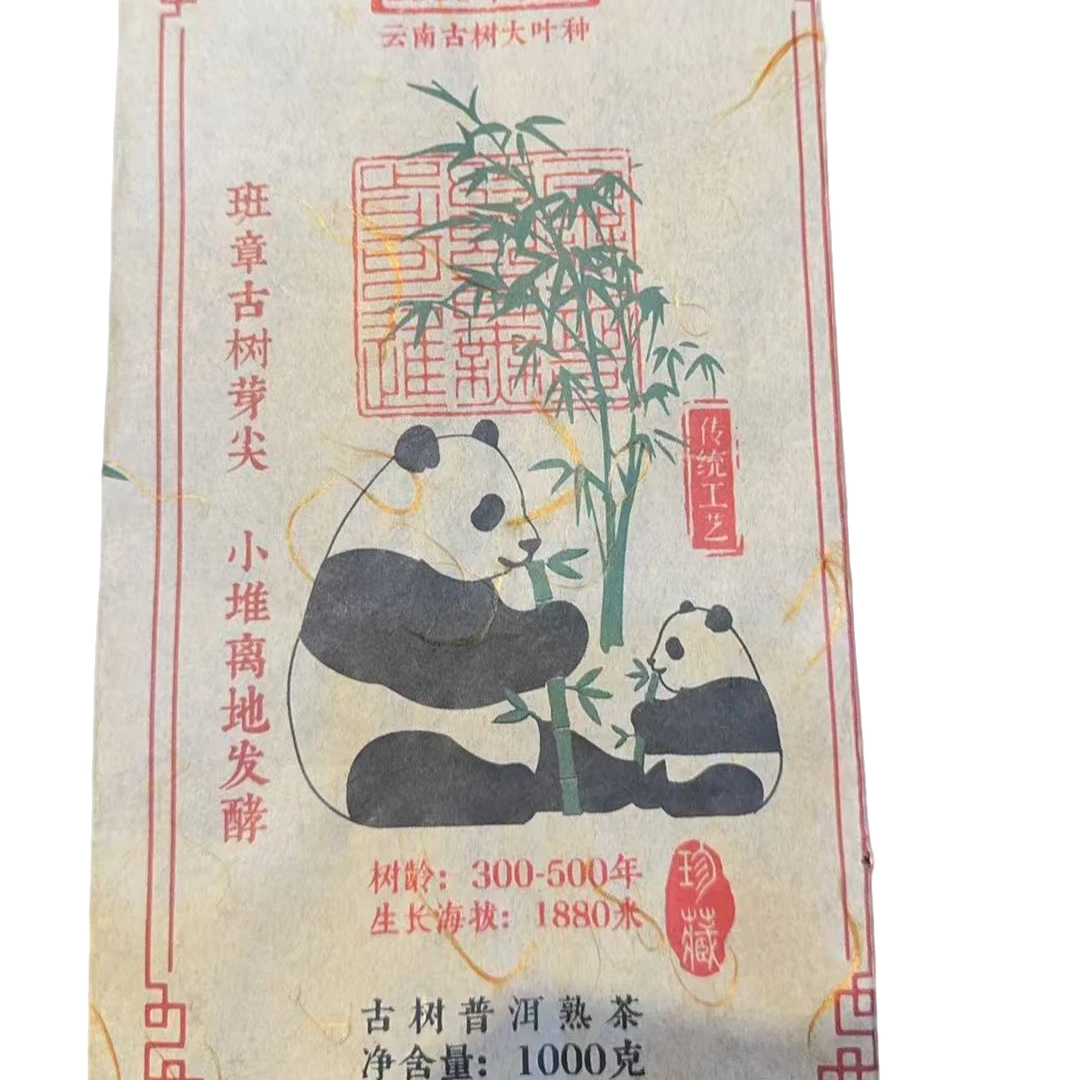 云南古树大叶种
班章古树芽尖
小堆离地发酵
传统工艺
树龄：300-500年
生长海拔：1880米
珍藏
古树普洱熟茶
净含量：1000克